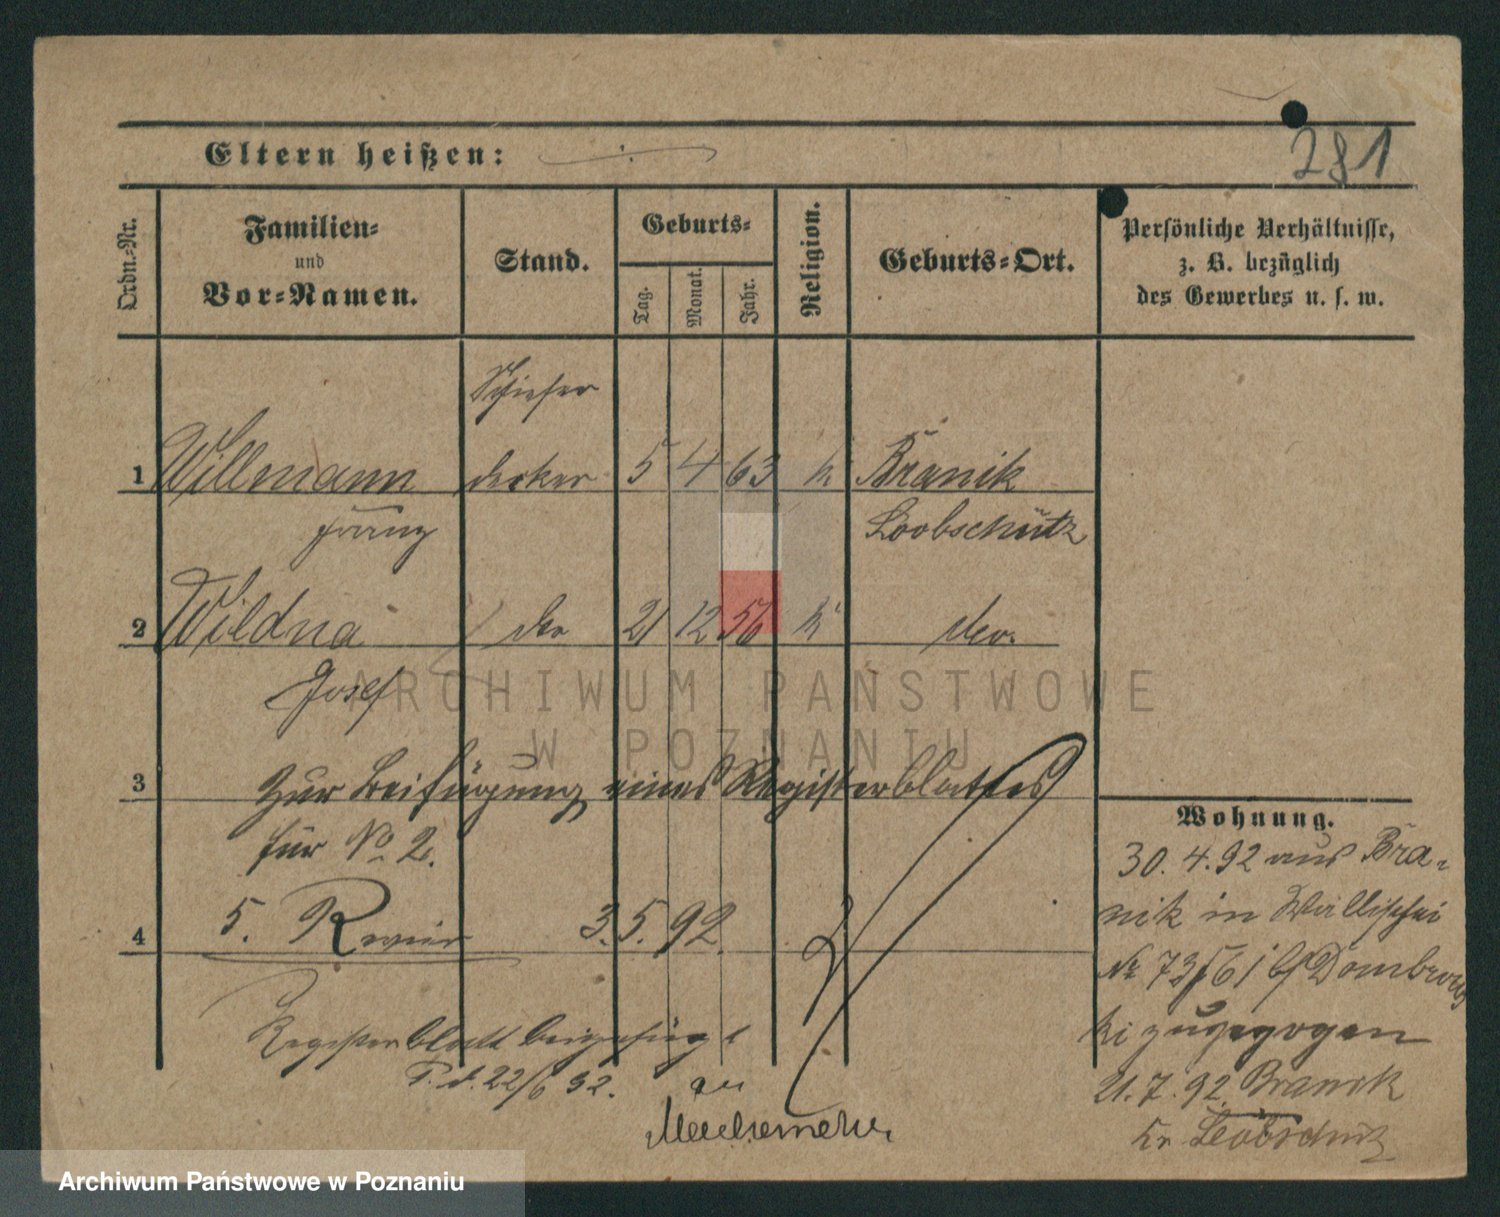 281
Eltern heißen:
Ordn.-Nr.
Familien-
und
Vor-Namen.
Stand.
Geburts-
Tag.
Monat.
Jahr.
Religion.
Geburts-Ort.
Persönliche Verhältnisse,
z. B. bezüglich
des Gewerbes u. s. w.
Schiefer
1 Willmann decker 5 4 63 k. Branik
Franz Loobschütz
2 Wildna 21 12 56 k
Josef
ARCHIWUM PAŃSTWOWE
W POZNANIU
3 Zur Beifügung eines Registerblattes
für No 2.
4 5. Revier 3.5.92.
Registerblatt beigefügt
22/6 92.
Wohnung.
30.4.92 aus Bra-
nik in Wallischei
No 73 b/ Dombrows
ki zugezogen
21.7.92. Branik
Kr. Leobschütz
Archiwum Państwowe w Poznaniu